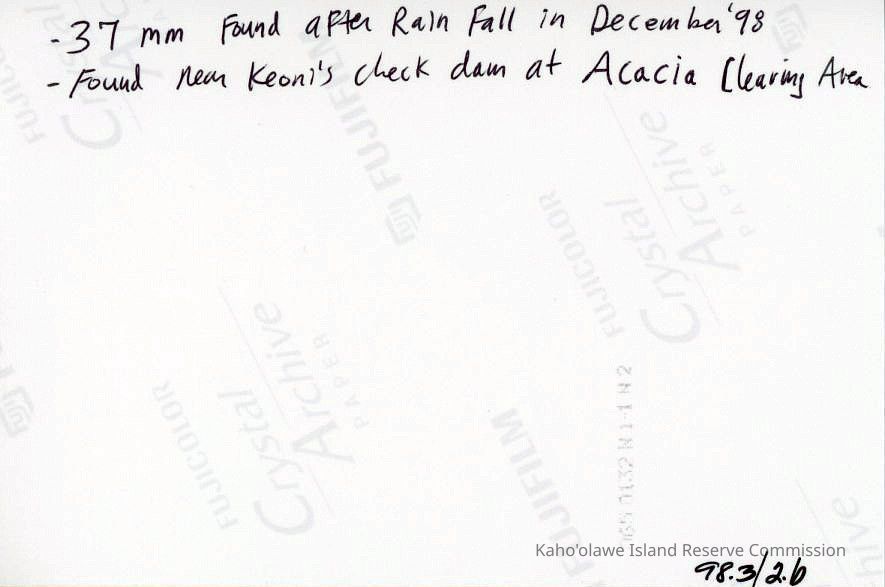 - 37 mm Found after Rain Fall in December '98
- Found near Keoni's check dam at Acacia Clearing Area
FUJICOLOR
Crystal
Archive
PAPER
FUJIFILM
FUJICOLOR
Crystal
Archive
PAPER
FUJICOLOR
Crystal
Archive
PAPER
FUJIFILM
Kaho'olawe Island Reserve Commission
98.3/2.b